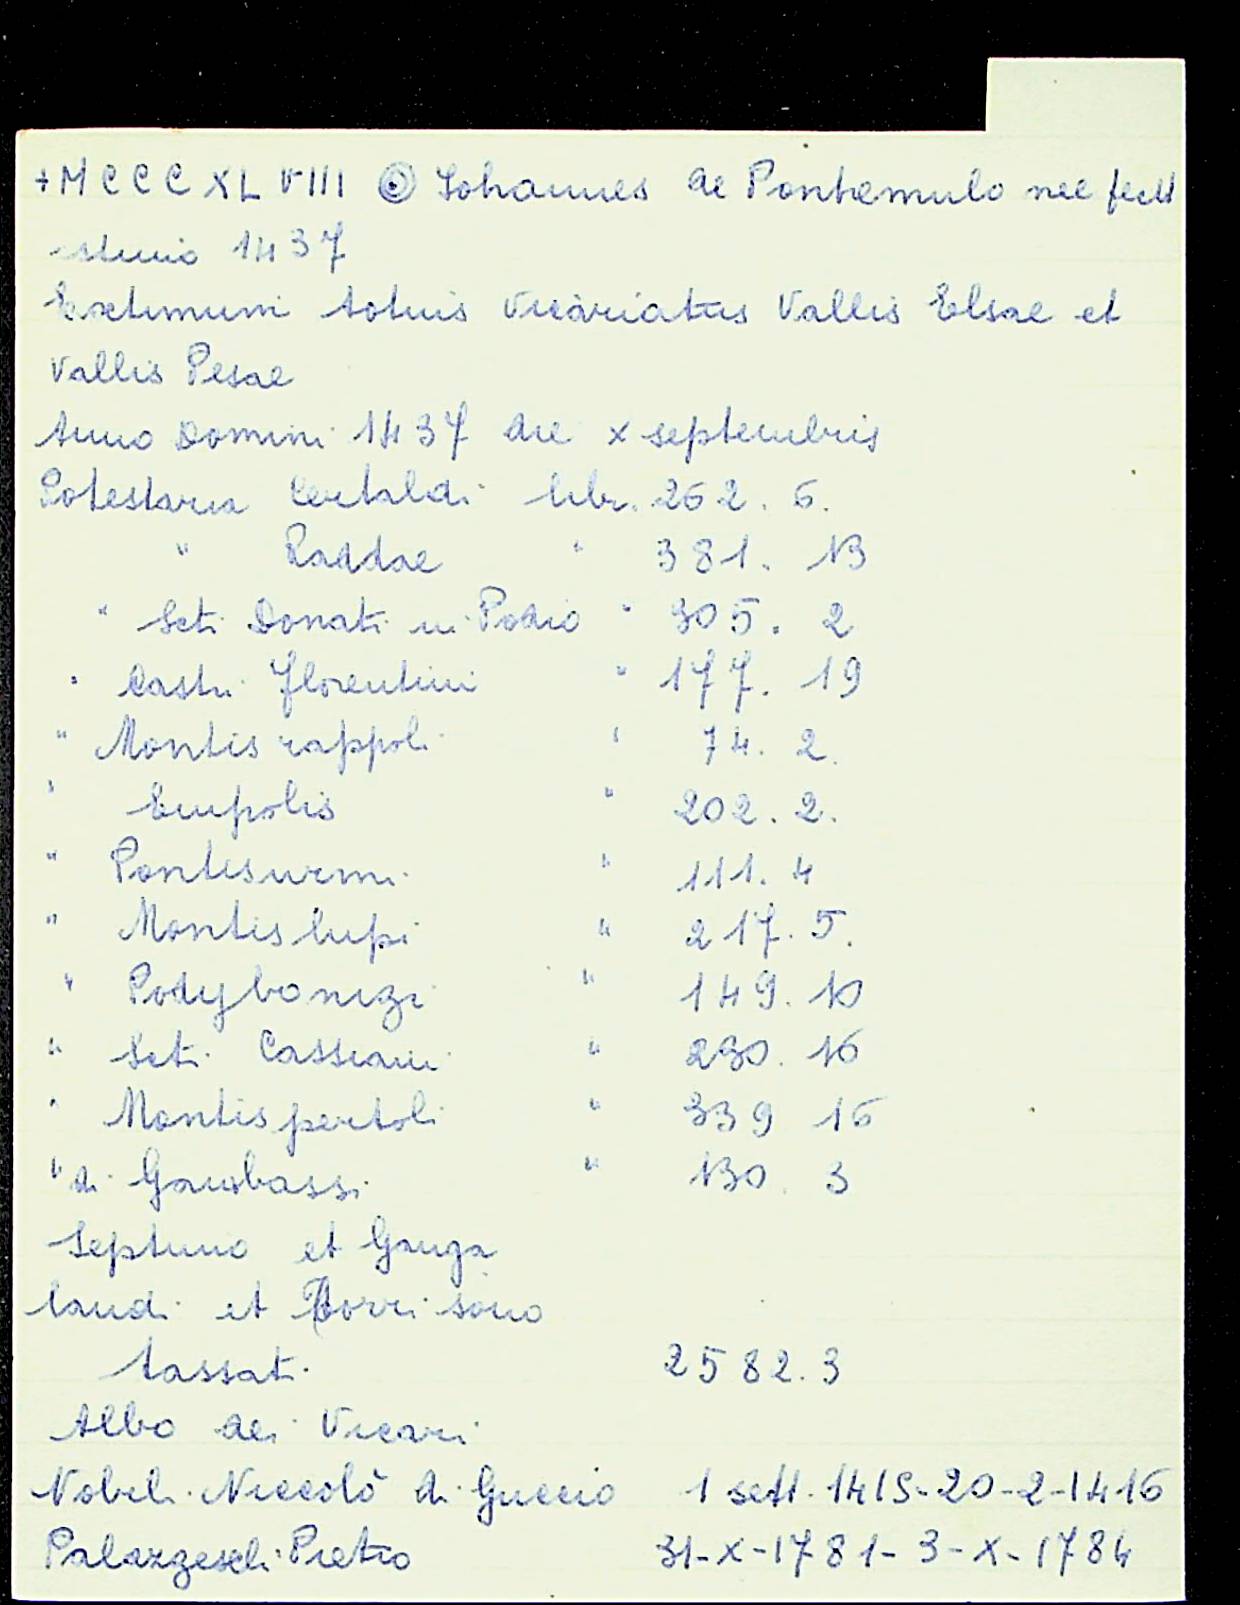 + M C C C XL VIII © Johannes de Pontremulo me fecit
estimo 1437
Extimum totius Vicariatus Vallis Elsae et
Vallis Pesae
Anno Domini 1437 die x septembris
Potestaria Certaldi libr. 262. 6.
" Raddae " 381. 13
" Scti Donati in Podio " 305. 2
" Castri Florentini " 177. 19
" Montis rappoli " 74. 2.
" Empolis " 202. 2.
" Pontisurmi " 111. 4
" Montis lupi " 217. 5.
" Podybonizi " 149. 10
" Scti Cassiani " 230. 16
" Montis pertoli " 339 16
" di Gambassi " 130. 3
Septimo et Ganga
landi et Torri sono
tassati 2582. 3
Albo dei Vicari
Nobili Niccolò di Guccio 1 sett. 1415-20-2-1416
Palazzeschi Pietro 31-X-1781-3-X-1784